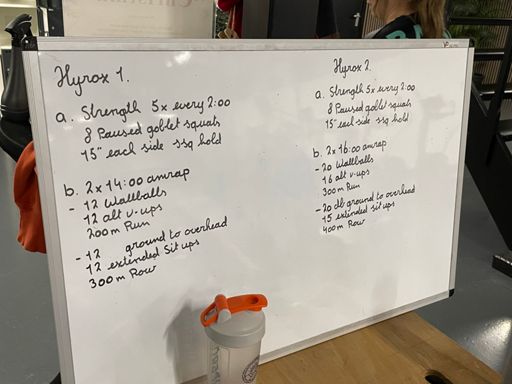 Hyrox 1.
a. Strength 5x every 2:00
8 Paused goblet squats
15" each side ssq hold
b. 2x14:00 amrap
- 12 Wallballs
12 alt v-ups
200m Run
- 12 ground to overhead
12 extended sit ups
300m Row
Hyrox 2.
a. Strength 5x every 2:00
8 Paused goblet squats
15" each side ssq hold
b. 2x16:00 amrap
- 20 Wallballs
16 alt v-ups
300m Run
- 20 db ground to overhead
15 extended sit ups
400m Row